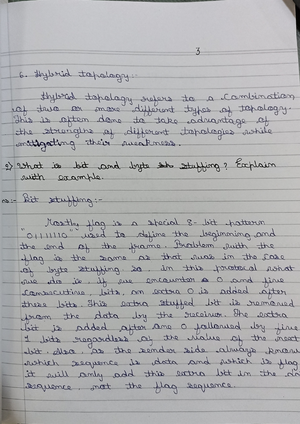 3
6. Hybrid topology :-
Hybrid topology refers to a combination
of two or more different types of topology.
This is often done to take advantage of
the strengths of different topologies while
mitigating their weakness.
What is bit and byte stuffing? Explain
with example.
Bit stuffing :-
Mostly flag is a special 8-bit pattern
"01111110" used to define the beginning and
the end of the frame. Problem with the
flag is the same as that was in the case
of byte stuffing. So, in this protocol what
we do is, if we encounter 0 and five
consecutive bits, an extra 0 is added after
these bits. This extra stuffed bit is removed
from the data by the receiver. The extra
bit is added after one 0 followed by five
1 bits regardless of the value of the next
bit. Also, as the sender side always knows
which sequence is data and which is flag
it will only add this extra bit in the
sequence, not the flag sequence.